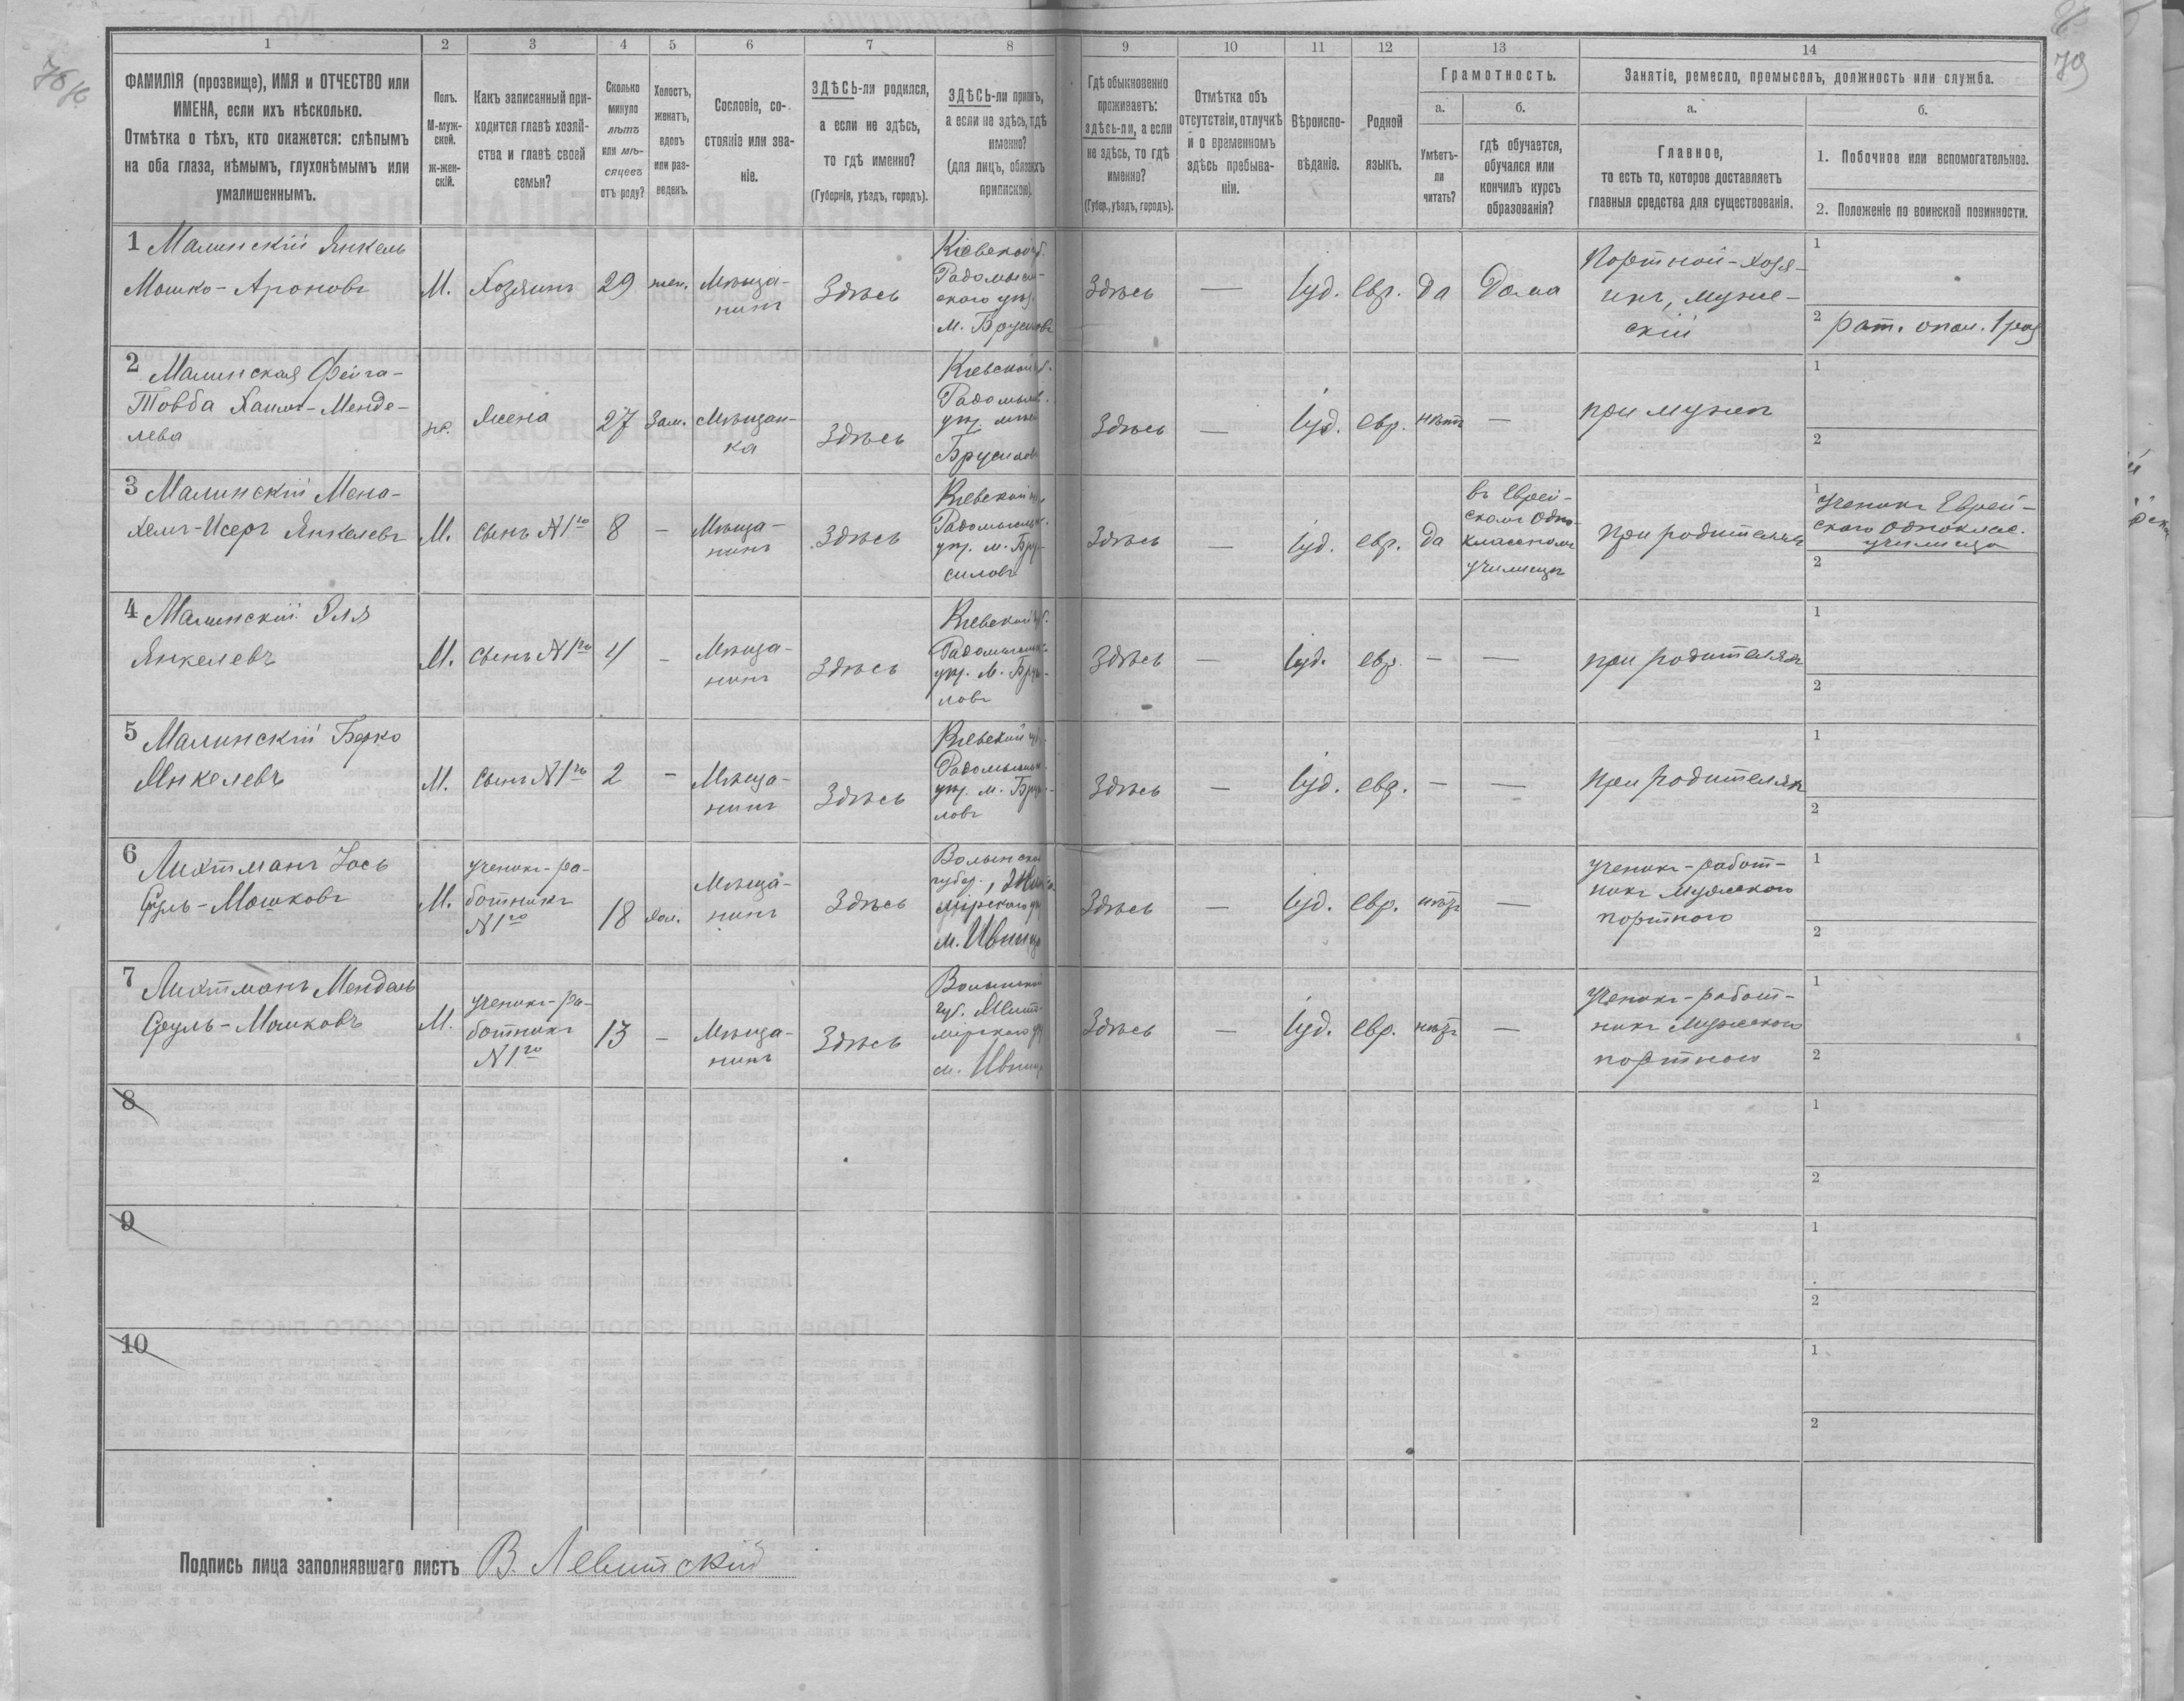 1 2 3 4 5 6 7 8 9 10 11 12 13 14
ФАМИЛІЯ (прозвище), ИМЯ и ОТЧЕСТВО или
ИМЕНА, если ихъ нѣсколько.
Отмѣтка о тѣхъ, кто окажется: слѣпымъ
на оба глаза, нѣмымъ, глухонѣмымъ или
умалишеннымъ.
Полъ.
М-муж-
ской.
Ж-жен-
скій.
Какъ записанный при-
ходится главѣ хозяй-
ства и главѣ своей
семьи?
Сколько
минуло
лѣтъ
или мѣ-
сяцевъ
отъ роду?
Холостъ,
женатъ,
вдовъ
или раз-
веденъ.
Сословіе, со-
стояніе или зва-
ніе.
ЗДѢСЬ-ли родился,
а если не здѣсь,
то гдѣ именно?
(Губернія, уѣздъ, городъ).
ЗДѢСЬ-ли
а если не здѣсь, гдѣ
именно?
(для лицъ,
припискою).
Гдѣ обыкновенно
проживаетъ:
здѣсь-ли, а если
не здѣсь, то гдѣ
именно?
(Губер., уѣздъ, городъ).
Отмѣтка объ
отсутствіи, отлучкѣ
и о временномъ
здѣсь пребыва-
ніи.
Вѣроиспо-
вѣданіе.
Родной
языкъ.
Грамотность.
а.
Умѣетъ-
ли
читать?
б.
гдѣ обучается,
обучался или
кончилъ курсъ
образованія?
Занятіе, ремесло, промыселъ, должность или служба.
а.
Главное,
то есть то, которое доставляетъ
главныя средства для существованія.
б.
1. Побочное или вспомогательное.
2. Положеніе по воинской повинности.
1 Малинскій Янкель
Мошко-Ароновъ
М.
Хозяинъ
29
жен.
Мѣща-
нинъ
Здѣсь
Кіевской
Радомысль-
скаго уѣз.
м. Брусиловъ
Здѣсь
—
Іуд.
евр.
да
Дома
Портной-хозя-
инъ, муж-
скій
1
2 рат. опол. 1 раз
2 Малинская Фейга-
Товба Хаимъ-Менде-
лева
ж.
Жена
27
Зам.
Мѣщан-
ка
Здѣсь
Кіевской
Радомысл.
уѣз.
Брусилов
Здѣсь
—
Іуд.
евр.
нѣтъ
—
при мужѣ
1
2
3 Малинскій Мена-
хемъ-Исеръ Янкелевъ
М.
сынъ N 1го
8
—
Мѣща-
нинъ
Здѣсь
Кіевской
Радомысльск.
уѣз. м. Бру-
силовъ
Здѣсь
—
Іуд.
евр.
да
въ Еврей-
скомъ Одно-
классномъ
училищѣ
При родителяхъ
1 Ученикъ Еврей-
скаго Одноклас.
училища
2
4 Малинскій Эля
Янкелевъ
М.
сынъ N 1го
4
—
Мѣща-
нинъ
Здѣсь
Кіевской
уѣз. м.
ловъ
Здѣсь
—
Іуд.
евр.
—
—
при родителяхъ
1
2
5 Малинскій Берко
Янкелевъ
М.
Сынъ N 1го
2
—
Мѣща-
нинъ
Здѣсь
Кіевской
уѣз. м.
ловъ
Здѣсь
—
Іуд.
евр.
—
—
При родителяхъ
1
2
6 Лихтманъ Іось
Сруль-Мошковъ
М.
ученикъ-ра-
ботникъ
N 1го
18
хол.
Мѣща-
нинъ
Здѣсь
Волынской
губер.,
м. Ивница
Здѣсь
—
Іуд.
евр.
нѣтъ
—
ученикъ-работ-
никъ мужскаго
портного
1
2
7 Лихтманъ Мендель
Сруль-Мошковъ
М.
ученикъ-ра-
ботникъ
N 1го
13
—
Мѣща-
нинъ
Здѣсь
Волынской
губ. Жито-
мірскаго
м. Ивница
Здѣсь
—
Іуд.
евр.
нѣтъ
—
Ученикъ-работ-
никъ мужскаго
портного
1
2
8
1
2
9
1
2
10
1
2
Подпись лица заполнявшаго листъ В. Левитскій
79